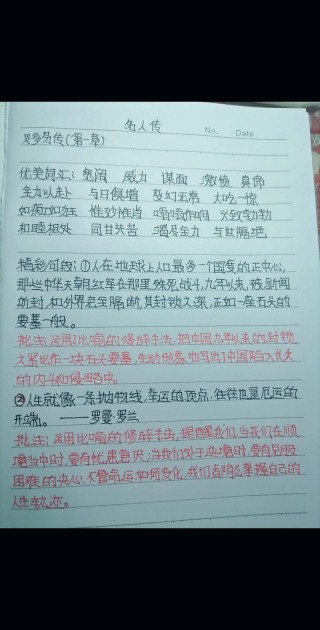 名人传
No. Date
贝多芬传(第一章)
优美词汇: 宽阔 威力 谋面 激愤 装饰
全力以赴 与日俱增 变幻无常 大吃一惊
如痴如狂 惟妙惟肖 嗡嗡作响 兴致勃勃
和睦相处 同甘共苦 竭尽全力 与世隔绝
精彩句段:①人在地球上人口最多一个国度的正中心,
那些中华天朝红军在那里殊死战斗,九年以来,被新闻
所封,和外界启至隔断,其封锁久深,正如一座石头的
要塞一般。
批注:运用比喻的修辞手法,把中国九年以来的封锁
久累比作一块石头要塞,生动形象地写出了中国陷入长久
的内斗和侵略中。
②人生就像一条抛物线,幸运的顶点,往往也是厄运的
开端。 ——罗曼·罗兰
批注:运用比喻的修辞手法,提醒我们,当我们在顺
境当中时,要有忧患意识,当我们处于逆境时,要有克服
困难的决心,不管命运如何变化,我们都要掌握自己的
人生轨迹。